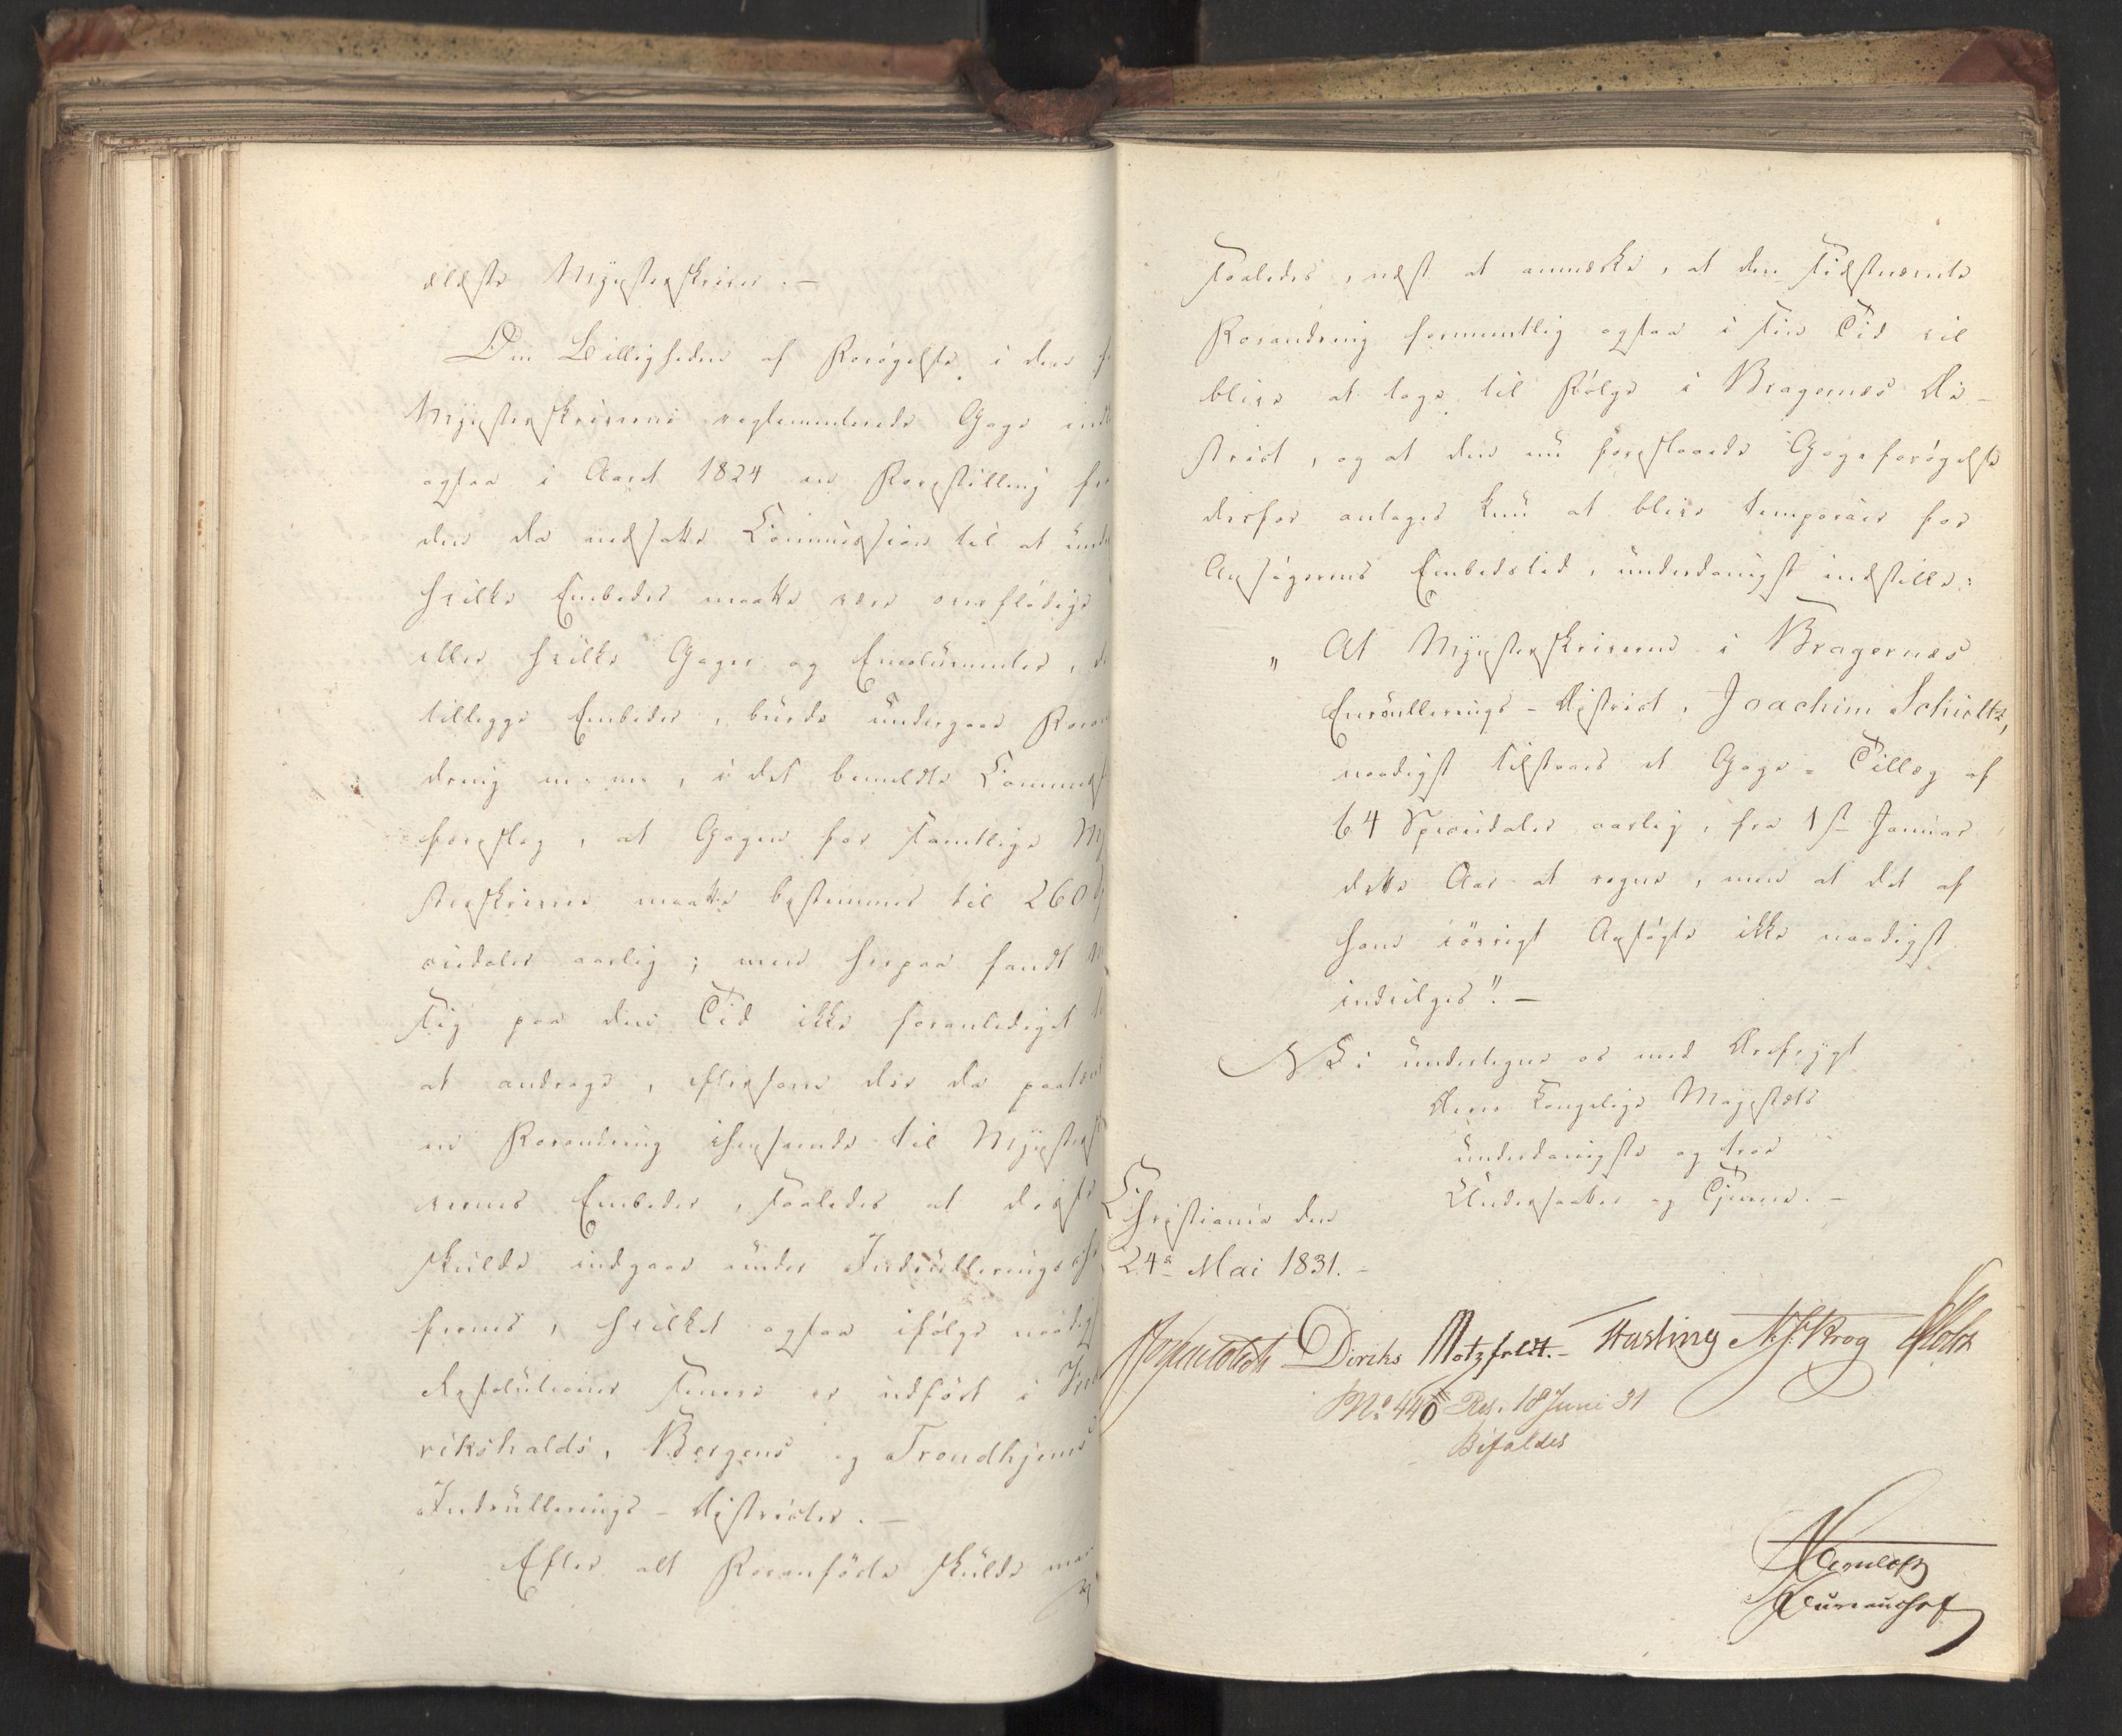 ældste Mynsterskriver. —
Om Billigheden af Forøgelse i den f
Mynsterskriverne reglementerede Gage ind
ogsaa i Aaret 1824 en Forestilling fr
den da nedsatte Commission til at und
hvilke Embeder maatte være overflødige
eller hvilke Gager og Emolumenter, d
tillagge Embeder, burde undergaae Foran
dring m. m., i det bemeldte Commiss
foreslog, at Gagen for samtlige My
sterskrivere maatte bestemmes til 260 S
ciedaler aarlig; men herpaa fandt m
sig paa den Tid ikke foranlediget t
at andrage, eftersom der da paatæn
en Forandring ihenseende til Mynstersk
vernes Embeder, saaledes at disse
skulde indgaae under Indrulleringsche
fernes, hvilket ogsaa ifølge naadig
Resolutioner senere er udført i Fred
rikshalds, Bergens og Trondhjems
Indrullerings-Districter. —
Efter alt Foranførte skulde man
saaledes, næst at anmærke, at den sidstnævnte
Forandring formeentlig ogsaa i sin Tid vil
blive at tage til Følge i Bragernæs Di-
strict, og at den nu foreslaaede Gageforøgelse
derfor antages kun at blive temporair for
Ansøgerens Embedstid, underdanigst indstille:
„ At Mynsterskriveren i Bragernæs
Enroullerings-District, Joachim Schieltz,
naadigst tilstaaes et Gage-Tillæg af
64 Speciedaler aarlig, fra 1ste Januar
dette Aar at regne, men at det af
ham iøvrigt Ansøgte ikke naadigst
indvilges". —
Vi undertegne os med Ærefrygt
Deres Kongelige Majestæts
underdanigste og troe
Undersaatter og Tjenere. —
Christiania den
24de Mai 1831. —
Diriks Motzfeldt. — Fasting Krog Holst
No. 440 Res. 18 Juni 31
Bifaldes